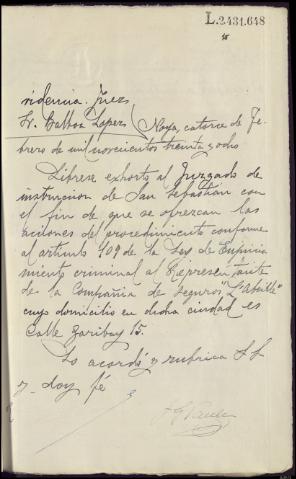 L.2.431.648
videncia: Juez
Sr. Balboa Lopez
Noya, catorce de Fe-
brero de mil novecientos treinta y ocho
Librese exhorto al Juzgado de
instruccion de San Sebastián con
el fin de que se ofrezcan las
acciones del procedimiento conforme
al articulo 109 de la Ley de Enjuicia
miento criminal al Represen-tante
de la Compañia de Seguros "L'Abeille"
cuyo domicilio en dicha ciudad es
Calle Garibay 15.
Lo acordó y rubrica S. S.
y doy fé